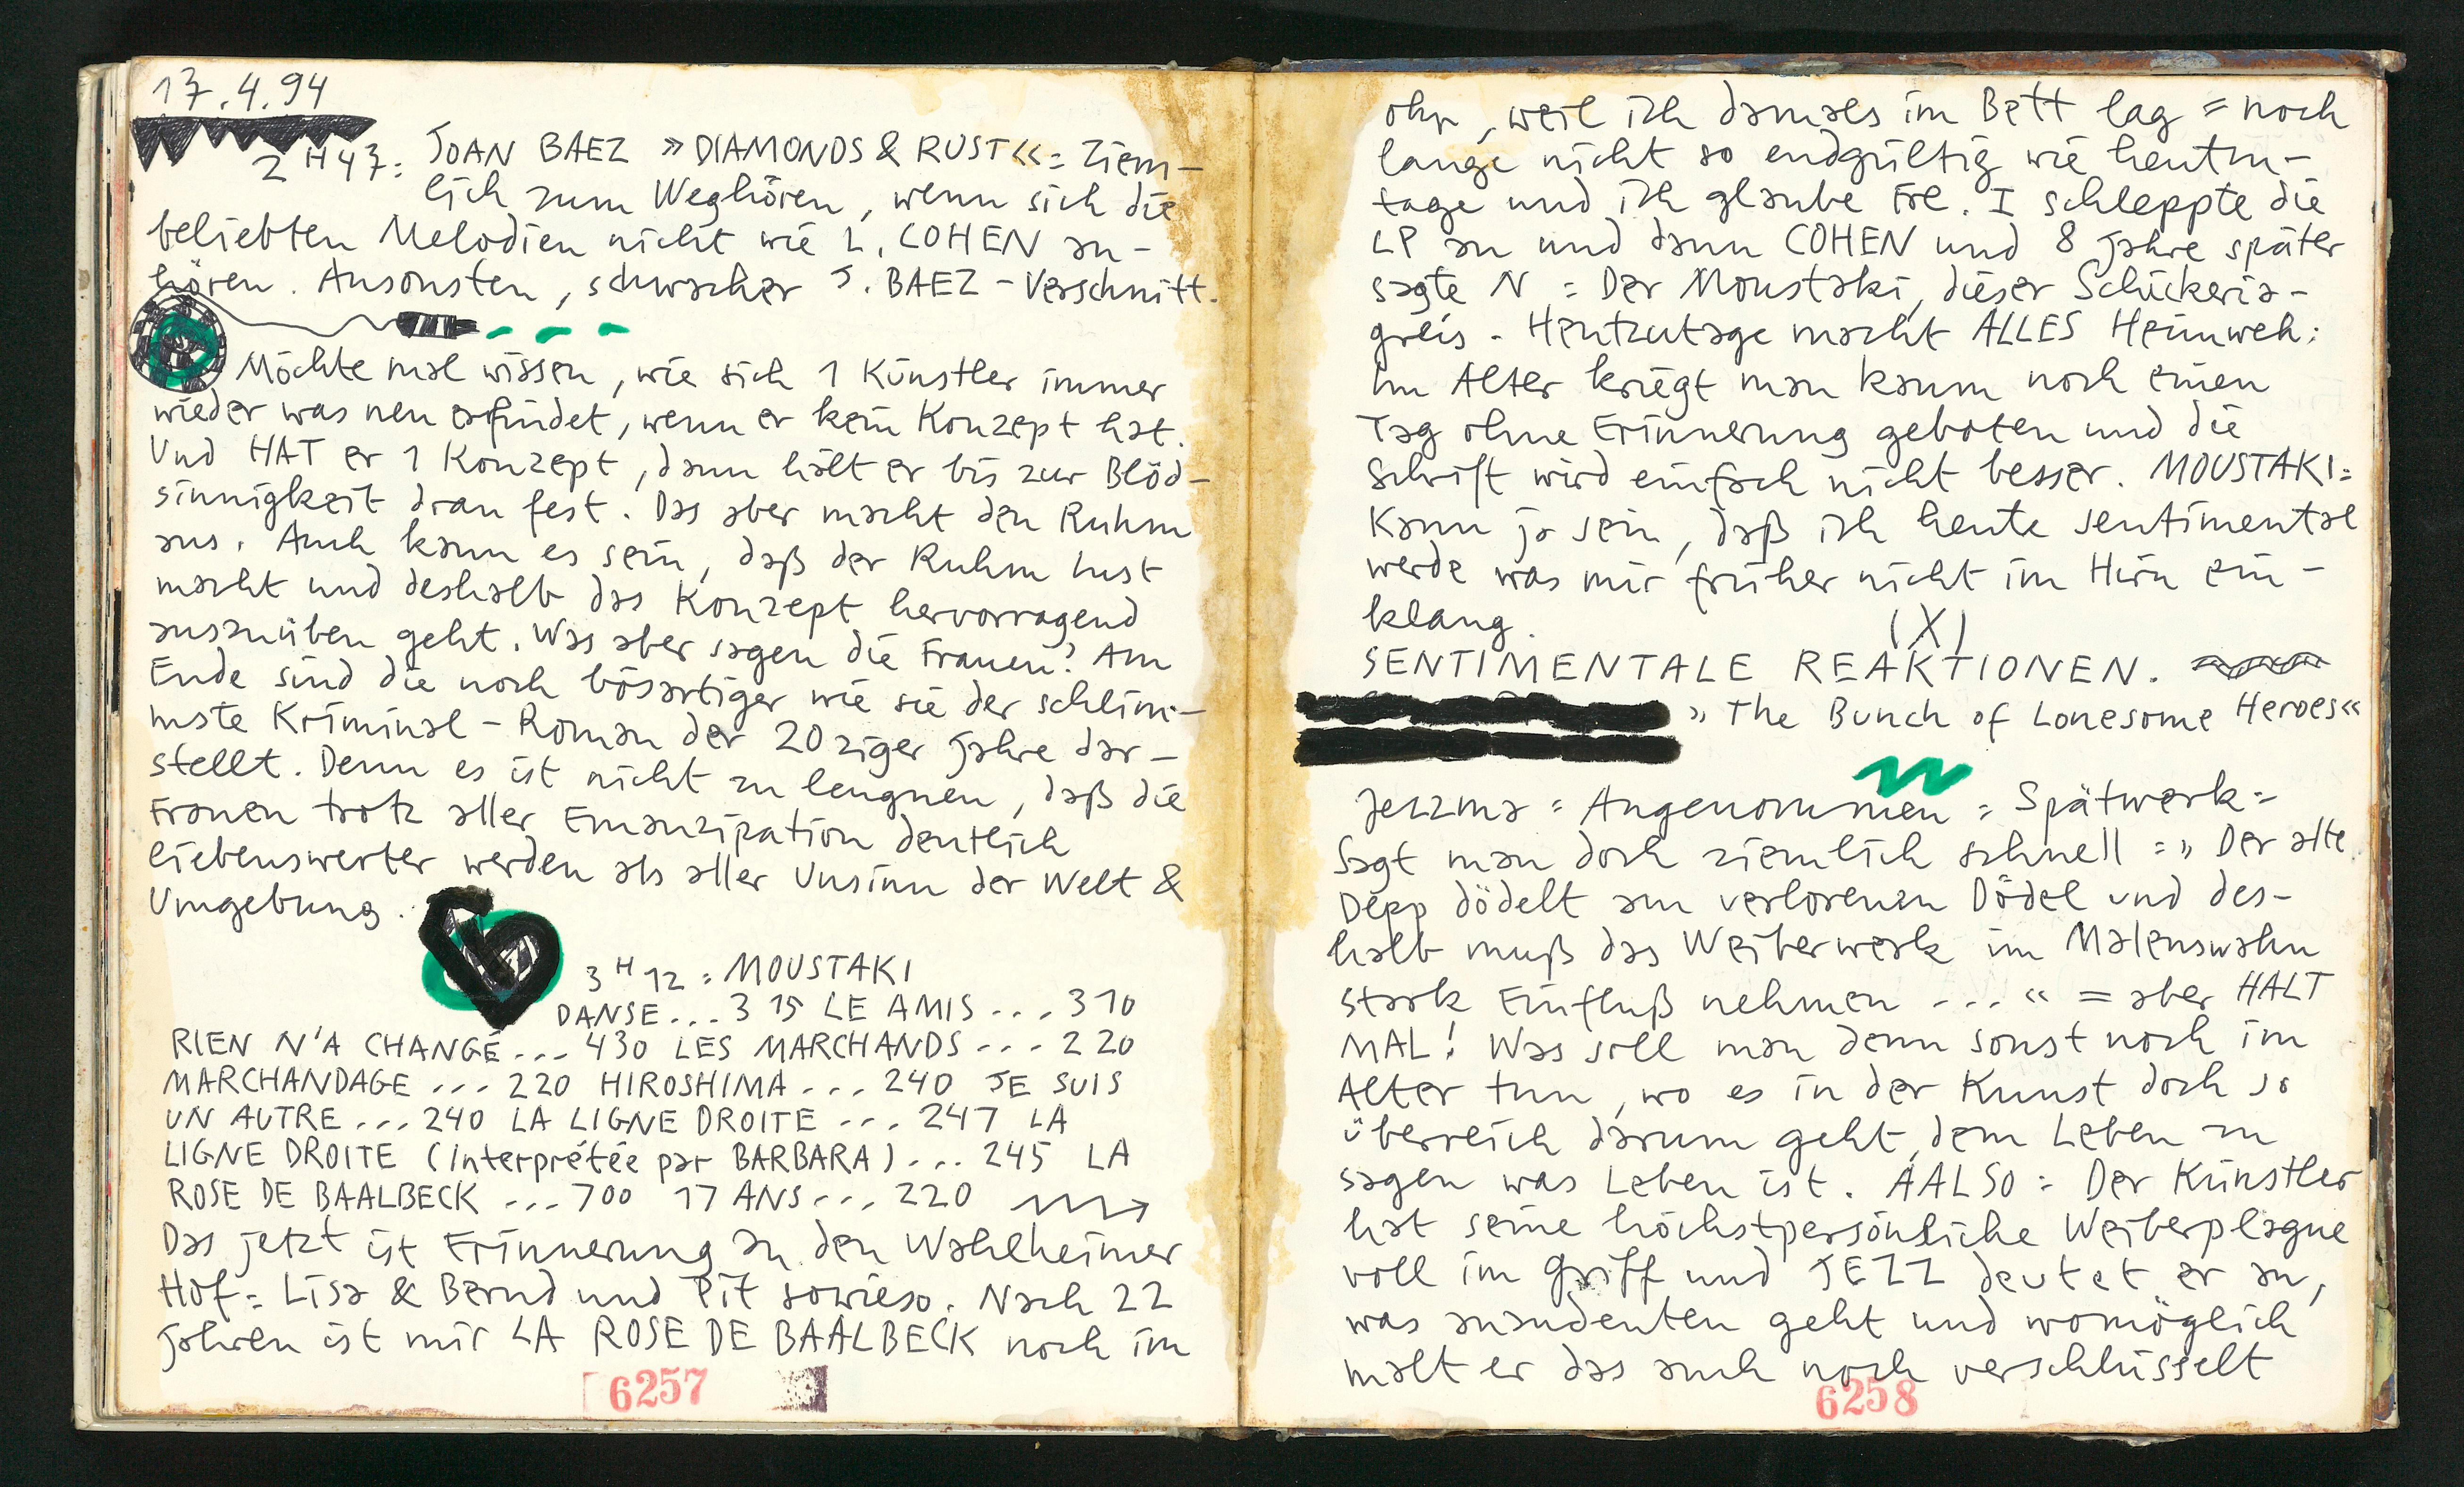 17.4.94
2 H 47: JOAN BAEZ »DIAMONDS & RUST«= Ziem-
lich zum Weghören, wenn sich die
beliebten Melodien nicht wie L. COHEN an-
hören. Ansonsten, schwacher J. BAEZ - Verschnitt.
Möchte mal wissen, wie sich 1 Künstler immer
wieder was neu erfindet, wenn er kein Konzept hat.
Und HAT er 1 Konzept, dann hält er bis zur Blöd-
sinnigkeit dran fest. Das aber macht den Ruhm
aus. Auch kann es sein, daß der Ruhm Lust
macht und deshalb das Konzept hervorragend
auszuüben geht. Was aber sagen die Frauen? Am
Ende sind die noch bösartiger wie sie der schlim-
mste Kriminal-Roman der 20ziger Jahre dar-
stellt. Denn es ist nicht zu leugnen, daß die
Frauen trotz aller Emanzipation deutlich
liebenswerter werden als aller Unsinn der Welt &
Umgebung.
3 H 12 = MOUSTAKI
DANSE... 3 15 LE AMIS ... 310
RIEN N'A CHANGÉ... 430 LES MARCHANDS ... 220
MARCHANDAGE ... 220 HIROSHIMA ... 240 JE SUIS
UN AUTRE ... 240 LA LIGNE DROITE ... 247 LA
LIGNE DROITE (interprétée par BARBARA) ... 245 LA
ROSE DE BAALBECK ... 700 17 ANS ... 220
Das jetzt ist Erinnerung an den Wahlheimer
Hof = Lisa & Bernd und Pit sowieso. Nach 22
Jahren ist mir LA ROSE DE BAALBECK noch im
6257
ohr, weil ich damals im Bett lag = noch
lange nicht so endgültig wie heutzu-
tage und ich glaube Frl. I schleppte die
LP an und dann COHEN und 8 Jahre später
sagte N = Der Moustaki, dieser Schickeria-
greis - Heutzutage macht ALLES Heimweh:
Im Alter kriegt man kaum noch einen
Tag ohne Erinnerung geboten und die
Schrift wird einfach nicht besser. MOUSTAKI=
Kann ja sein, daß ich heute sentimental
werde was mir früher nicht im Hirn ein-
klang.
(X)
SENTIMENTALE REAKTIONEN.
» The Bunch of Lonesome Heroes«
Jezzma = Angenommen = Spätwerk =
Sagt man doch ziemlich schnell = » Der alte
Depp dödelt am verlorenen Dödel und des-
halb muß das Weiberwerk im Malenswahn
stark Einfluß nehmen ... « = aber HALT
MAL! Was soll man denn sonst noch im
Alter tun, wo es in der Kunst doch so
überreich darum geht, dem Leben zu
sagen was Leben ist. AALSO = Der Künstler
hat seine höchstpersönliche Weiberplague
voll im Griff und JEZZ deutet er an,
was anzudeuten geht und womöglich
malt er das auch noch verschlüsselt
6258